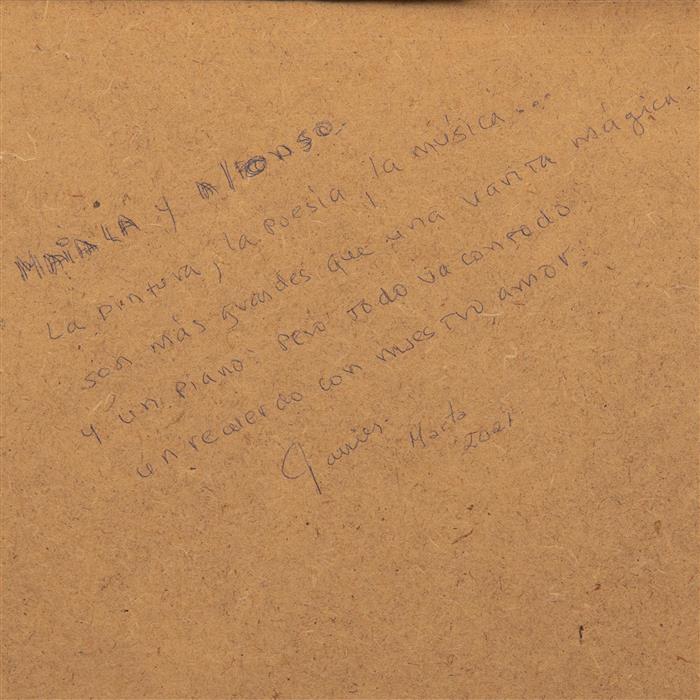 y Alfonso.
La pintura, la poesía, la música...
son más grandes que una varita mágica.
y un piano: pero todo va con todo
un recuerdo con nuestro amor.
Marta